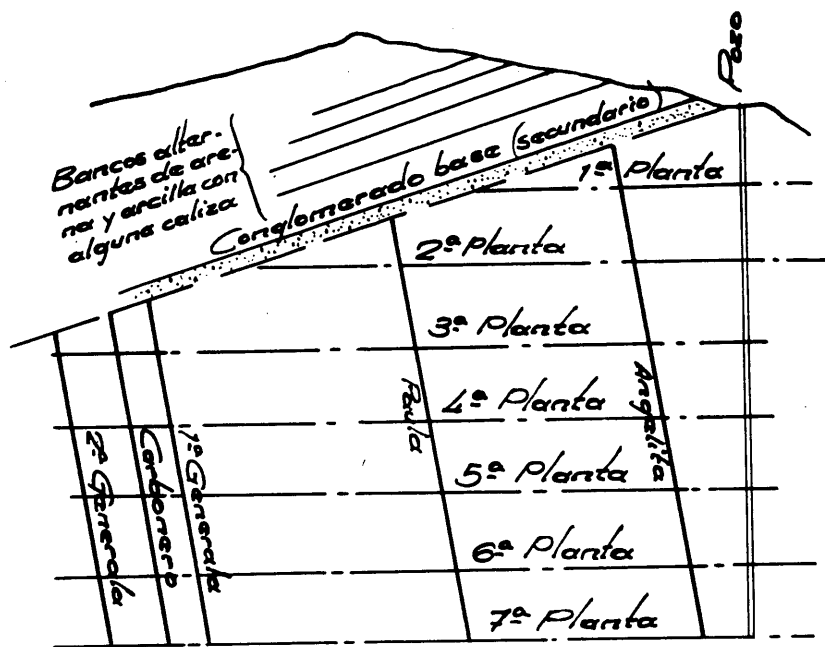 Pozo
Bancos alter-
nantes de are-
na y arcilla con
alguna caliza
Conglomerado base (secundario)
1ª Planta
2ª Planta
3ª Planta
4ª Planta
5ª Planta
6ª Planta
7ª Planta
2ª Generala
Carbonero
1ª Generala
Paula
Angelita